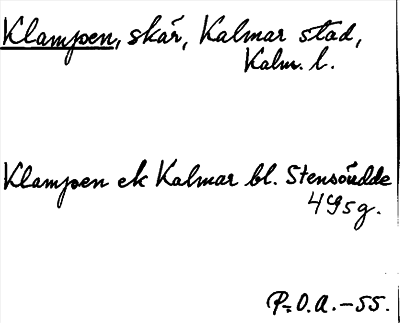 Klampen, skär, Kalmar stad,
Kalm. l.
Klampen ek Kalmar bl. Stensöudde
495g.
P.O.A.-55.